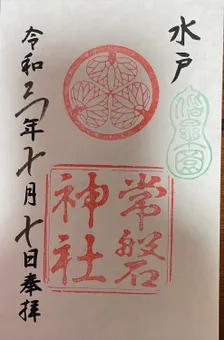 水戸
偕樂園
常磐
神社
令和年十月七日奉拝